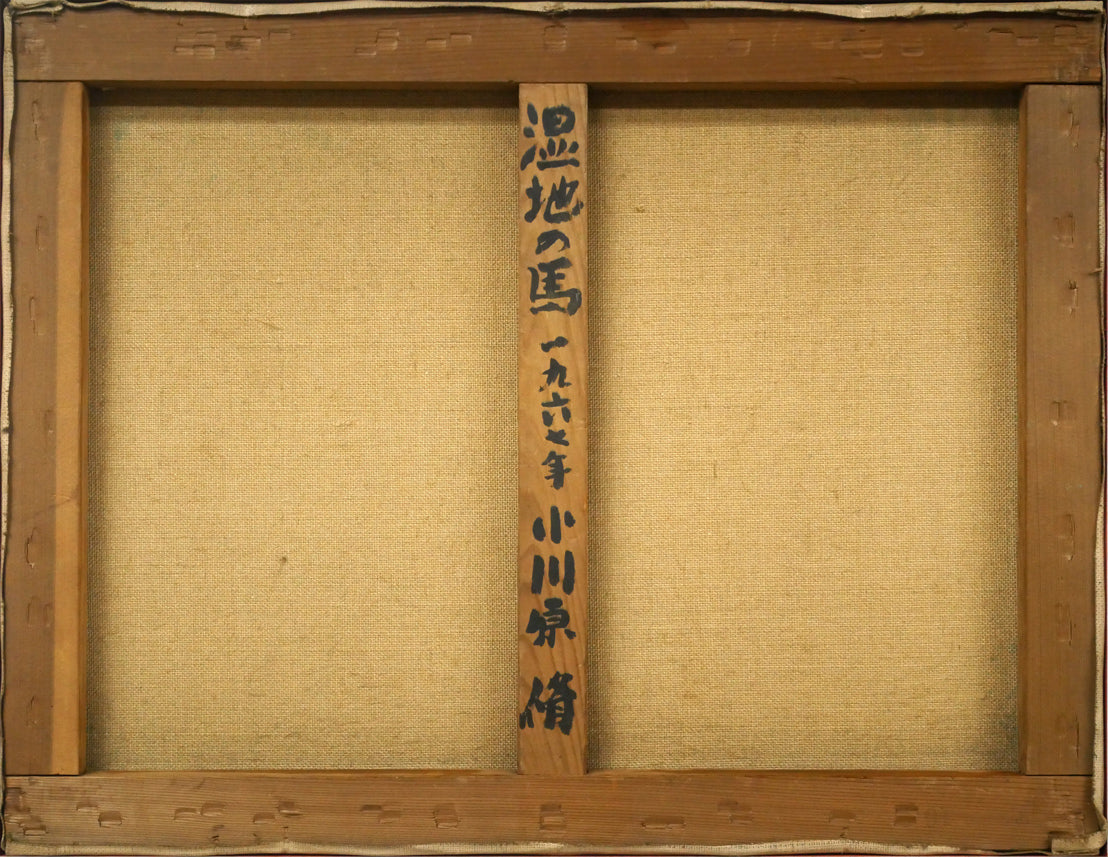 湿地の馬 一九六七年 小川原 脩